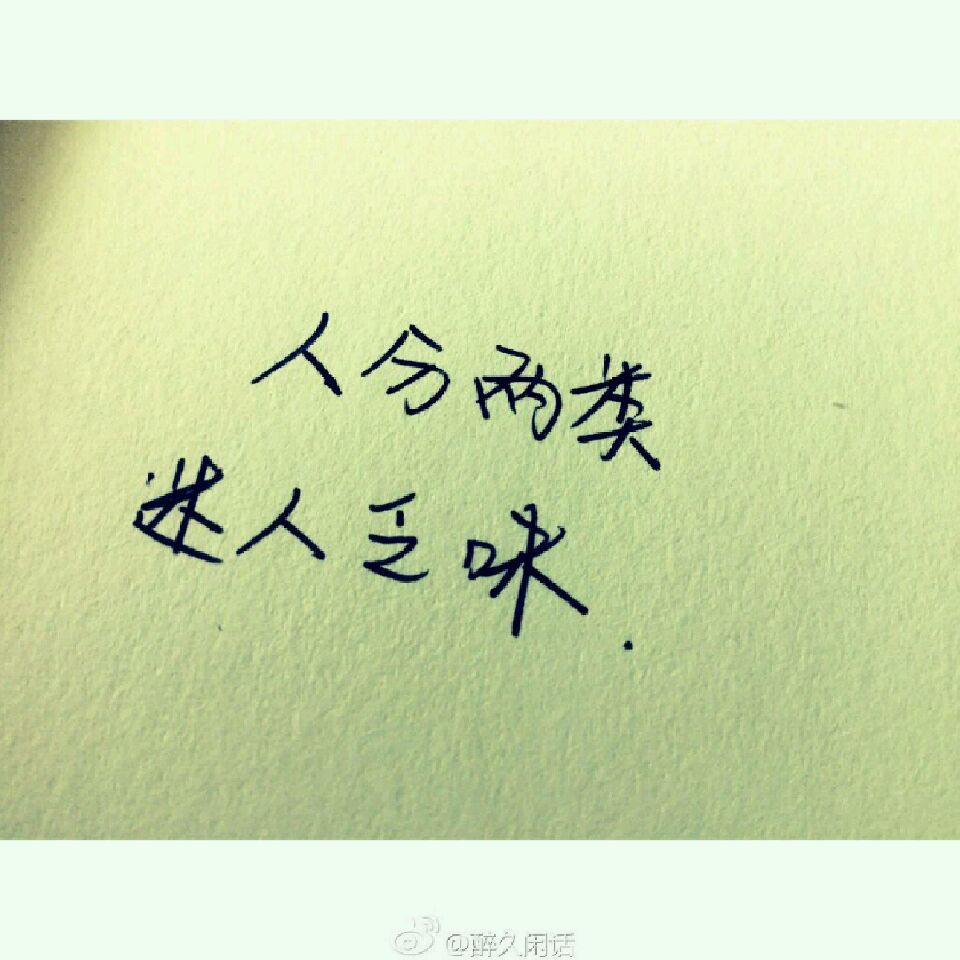 人分两类
迷人乏味.
@醉久闲话